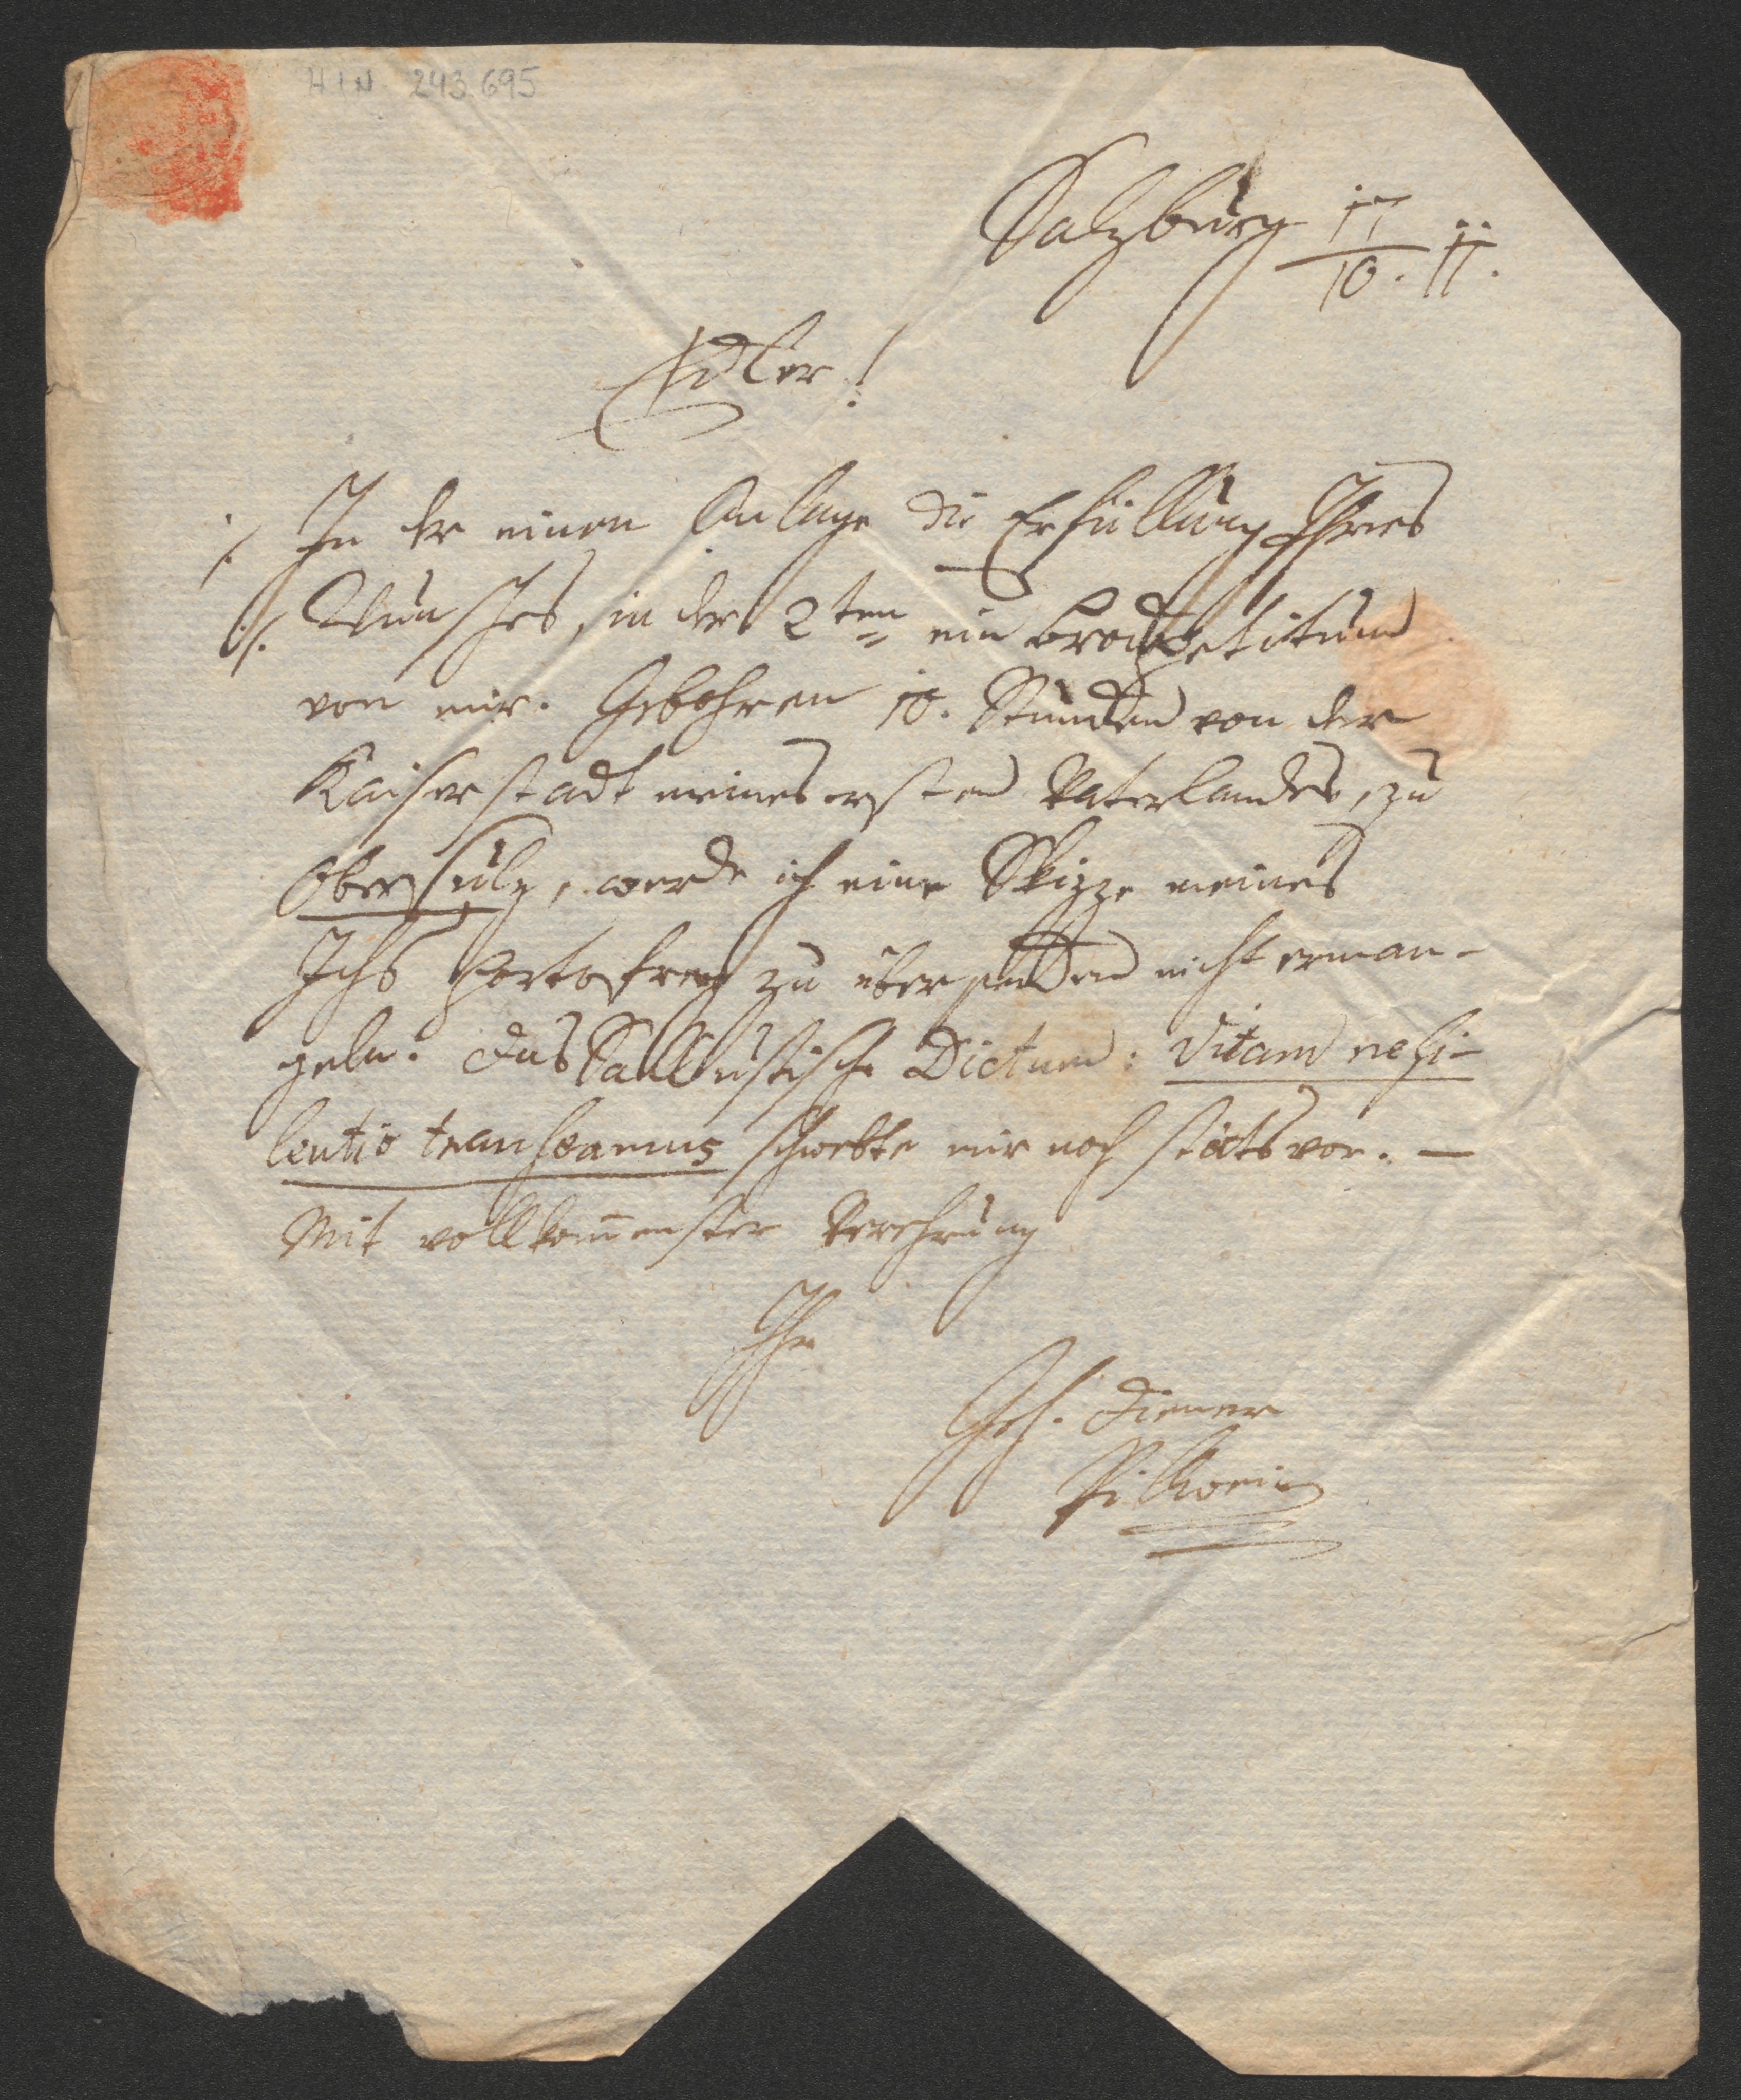 H.I.N. 243.695
Salzburg 17/10. 11.
Edler!
./. In der einen Anlage die Erfüllung Ihres
·/·/. Wunsches, in der 2ten ein Brodpetitum
von mir. Gebohren 10. Stunden von der
Kaiserstadt meines ersten Vaterlandes, zu
Obersulz, werde ich eine Skizze meines
Ichs portofrey zu übersenden nicht erman-
geln. Das Sallustische Dictum: Vitam ne si-
lentio transeamus schwebte mir noch stäts vor. —
Mit vollkom̄enster Verehrung
Ihr
Geh. Diener
Pillwein